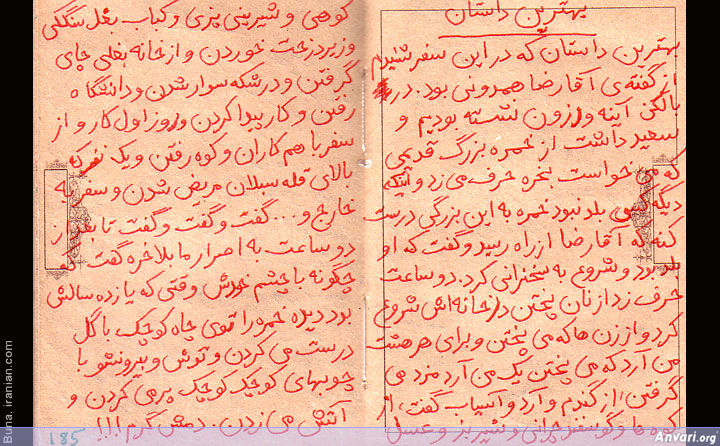 بهترین داستان
بهترین داستان که در این سفر شنیدم
از گفته‌ی آقا رضا همدونی بود. در
بالکن آینه ورزون نشسته بودیم و
سعید داشت از خمره بزرگ قدیمی
که می خواست بخره حرف می زد و اینکه
دیگه کسی بلد نبود خمره به این بزرگی درست
کنه که آقا رضا از راه رسید و گفت که او
بلد بود و شروع به سخنرانی کرد. دو ساعت
حرف زد از نان پختن در خانه اش شروع
کرد و از زن ها که می پختن و برای هر هشت
من آرد که می پختن یک من آرد مزد می
گرفتن، از گندم و آرد و آسیاب گفت، از
کوه ها و گوسفند چرانی و شیر بز و عسل
کوهی و شیرینی پزی و کباب بغل سنگی
و زیر درخت خوردن و از خانه بغلی چای
گرفتن و درشکه سوار شدن و دانشگاه
رفتن و کار پیدا کردن و روز اول کار و از
سفر با هم کاران و کوه رفتن و یک نفر که
بالای قله سبلان مریض شدن و سفر به
خارج و... گفت و گفت و گفت تا بعد از
دو ساعت به اصرار ما بلاخره گفت که
چگونه با چشم خودش وقتی که یازده سالش
بود دیده خمره را توی چاه کوچک با گل
درست می کردن و توش و بیرونشو با
چوبهای کوچک کوچک پر می کردن و
آتش می زدن. دمش گرم!!!
185
Buna. iranian.com
Anvari.org